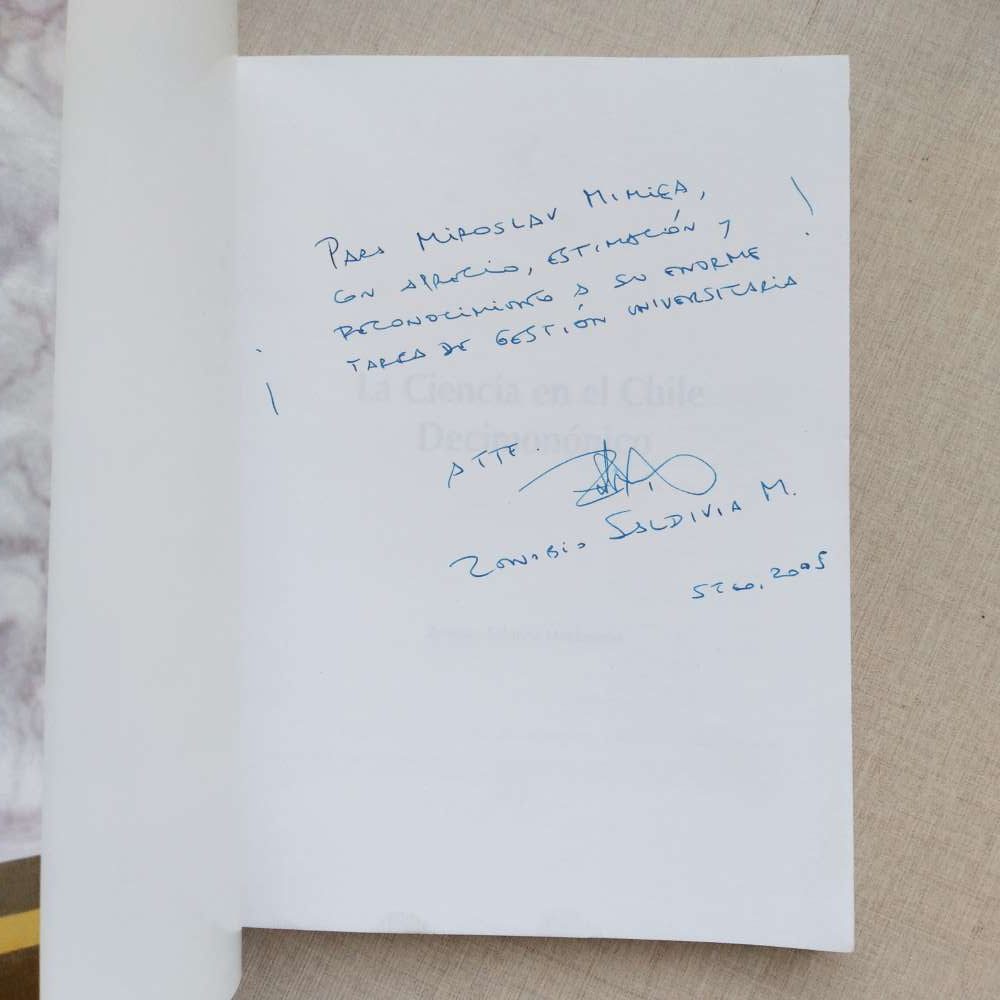 PARA MIROSLAV MIMICA,
CON APRECIO, ESTIMACIÓN Y
RECONOCIMIENTO A SU ENORME
TAREA DE GESTIÓN UNIVERSITARIA
¡ !
La Ciencia en el Chile
Decimonónico
ATTE.
ZENOBIO SALDIVIA M.
STGO, 2005